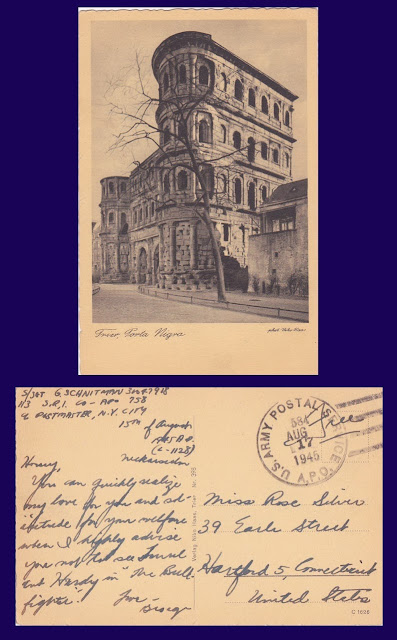 Trier Porta Nigra
S/Sgt G. SCHNITMAN
S.R.I. Co - APO 758
% POSTMASTER, N.Y. CITY
15th of August
Honey,
You can quickly realize
my love for you and sol-
icitude for your welfare
when I highly advise
you not to see Laurel
and Hardy in "The Bull-
fighters".
Love
George
U.S. ARMY POSTAL SERVICE
A.P.O.
AUG
17
1945
Free
Miss Rose Silver
39 Earle Street
Hartford 5, Connecticut
United States
C 1626